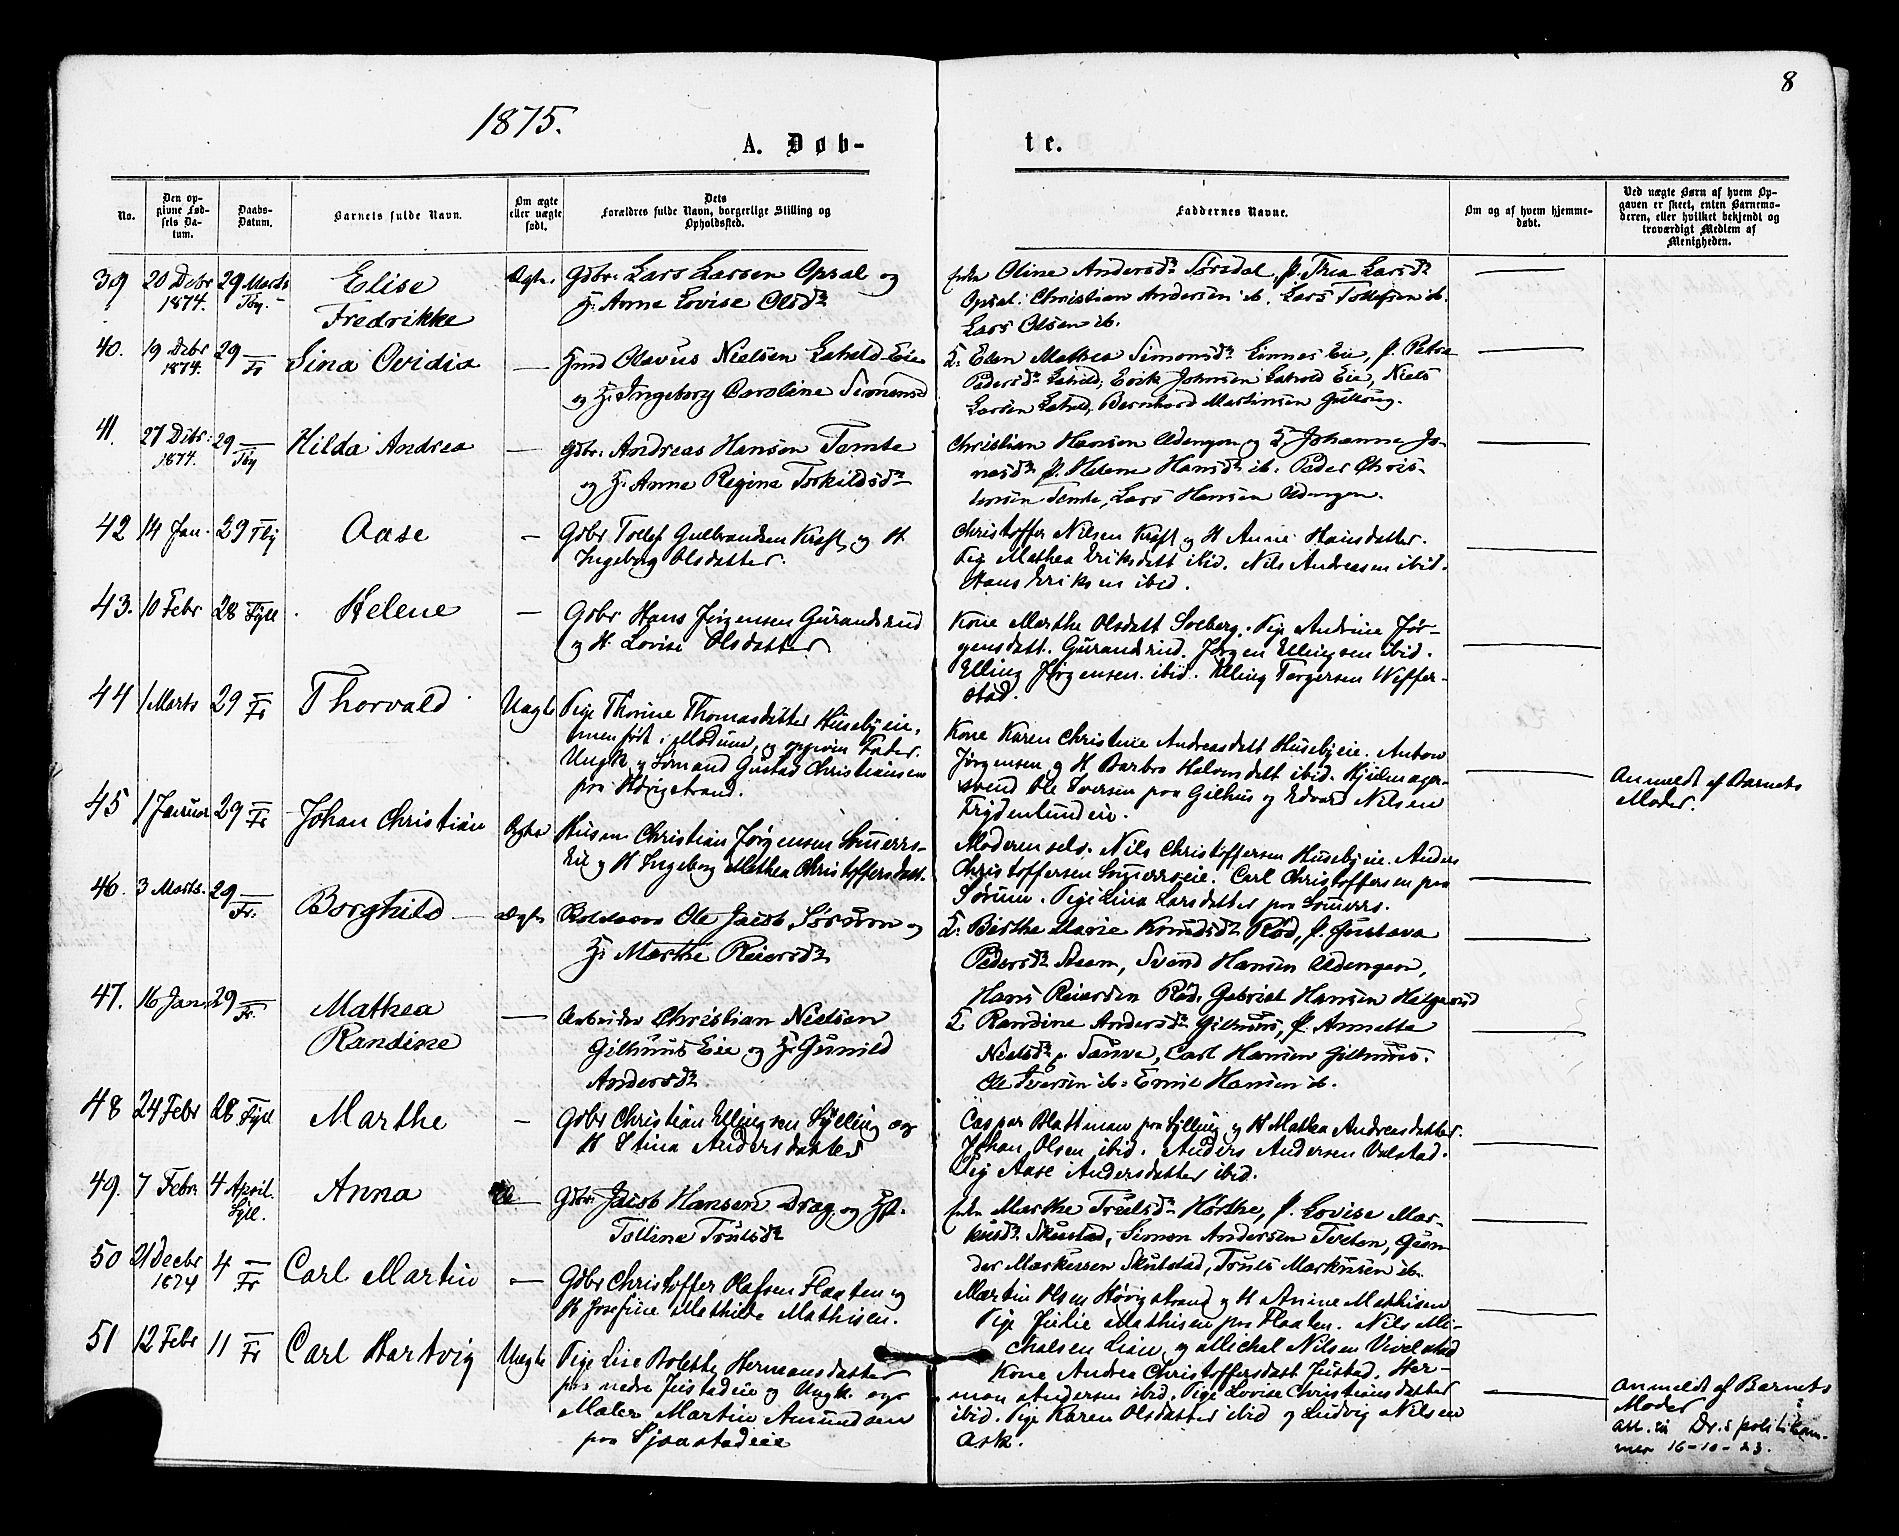 8
1875.
A. Døb-
te.
No.
Den op-
givne Fød-
sels Da-
tum.
Daabs-
Datum.
Barnets fulde Navn.
Om ægte
eller uægte
født.
Dets
Forældres fulde Navn, borgerlige Stilling og
Opholdssted.
Faddernes Navne.
Om og af hvem hjemme-
døbt.
Ved uægte Børn af hvem Op-
gaven er skeet, enten Barnemo-
deren, eller hvilket bekjendt og
troværdigt Medlem af
Menigheden.
39 20 Debr 29 Marts Elise Ægte. Gdbr: Lars Larsen Opsal og
1874. Fredrikke H. Anne Lovise Olsdr
Oline Andersdr Sørsdal, P. Thea Larsdr
Opsal. Christian Andersen ib. Lars Tollefsen ib.
Lars Olsen ib.
40. 19 Debr 29 Fr Lina Ovidia — Hmd Olavus Nielsen Eie
1874. og H. Ingeborg Caroline
E. Mathea Simonsdr Linnes Eie, P. Petra
Pedersdr Erik Johnsen Eie, Niels
Larsen Bernhard Martinsen Gulling.
41. 27 Debr: 29 Hilda Andrea — Gdbr: Andreas Hansen Tømte
1874. og H. Anne Regine Torkildsdr
Christian Hansen Adengen og H. Johanne Jo-
nasdr P. Helene Hansdr ib. Peder Chris-
tensen Tømte, Lars Hansen Adengen.
42 14 Jan. 29 Aase — Gdbr Tollef Gulbrandsen Kraft og H
Ingeborg Olsdatter.
Christoffer Nilsen Kraft og H Anne Hansdatter.
Pig Mathea Eriksdatt ibid. Nils Andreasen ibid.
Hans Eriksen ibid.
43. 10 Febr 28 Syll Helene — Gdbr Hans Jørgensen Gurandsrud
og H Lovise Olsdatter
Kone Marthe Olsdatt Solberg. Pige Andrine Jør-
gensdatt. Gurandsrud. Jørgen Ellingsen ibid.
Elling Jørgensen ibid. Elling Torgersen Weffer-
stad.
44 1 Marts 29 Fr Thorvald Uægte Pige Thorine Thomasdatter Husebyeie,
født i Modum, og opgiven Fader:
Ungk og Sømand Gustad Christiansen
fra Høvigstrand.
Kone Karen Christine Andreasdatt Husebyeie. Anton
Jørgensen og H Barbro Halvorsdatt ibid. Hjulmager-
svend Ole Iversen paa Gilhus og Edvard Nilsen
Frydenlundeie.
Anmeldt af Barnets
Moder.
45 1 Januar 29 Fr Johan Christian Ægte Husm Christian Jørgensen
Eie og H Ingeborg Mathea Christoffersdatt.
Moderen selv. Nils Christoffersen Husebyeie. Anders
Christoffersen Carl Christoffersen paa
Sørum. Pige Lina Larsdatter paa
46. 3 Marts. 29 Fr. Borghild — Ægte Ole Jacob og
H. Marthe Reiersdr
E. Birthe Marie Knudsdr Rød, P. Gustava
Pedersdr Svend Hansen Adengen,
Hans Reiersen Rød, Gabriel Hansen Helgerud
47. 16 Jan 29 Fr. Mathea — Arbeider Christian Nielsen
Randine Gilhuus Eie og H. Gunild
Andersdr.
E Randine Andersdr Gilhuus, P. Annette
Nielsdr Carl Hansen Gilhuus.
Ole Iversen ib. Emil Hansen ib.
48 24 Febr 28 Syll Marthe — Gdbr Christian Ellingsen Sylling og
H Stina Andersdatter
Caspar Plattman paa Sylling og H Mathea Andreasdatter.
Johan Olsen ibid. Anders Andersen Valstad.
Pig Aase Andersdatter ibid.
49. 7 Febr. 4 April. Syll. Anna Gdbr Jacob Hansen Drag, og Hst.
Tolline Trulsdr
Marthe Trulsdr Hørthe, P. Lovise Mar-
kusdr Skustad, Simon Andersen Tveten, Gun-
der Markussen Skutstad, Truls Markusen ib.
50 21 Decbr 4 Fr Carl Martin — Gdbr Christoffer Olafsen Flaaten og
1874 H Josefine Mathilde Mathisen.
Martin Olsen Høvigstrand og H Anine Mathisen
Pige Julie Mathisen paa Flaaten. Nils Mi-
chalsen Lian og Michal Nilsen Vivelstad
51 12 Febr 11 Fr Carl Hartvig Uægte Pige Lise Bolette Hermansdatter
paa nedre Justadeie og Ungk og
Maler Martin Amundsen
paa Sjaastadeie
Kone Andrea Christoffersdatt Justad. Her-
man Andersen ibid. Pige Lovise Christiansdatter
ibid. Pige Karen Olsdatter ibid og Ludvig Nilsen
Ask.
Anmeldt af Barnets
Moder
att. til Dr.s politikam-
mer 16-10-23.